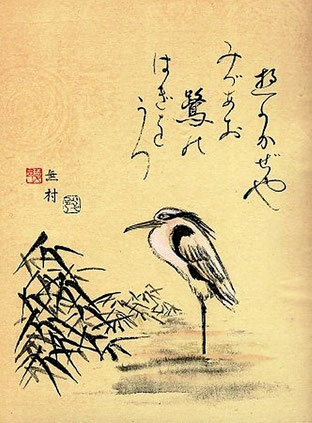 遊うかぜや
みづあお
鷺の
はぎを
うつ
無村